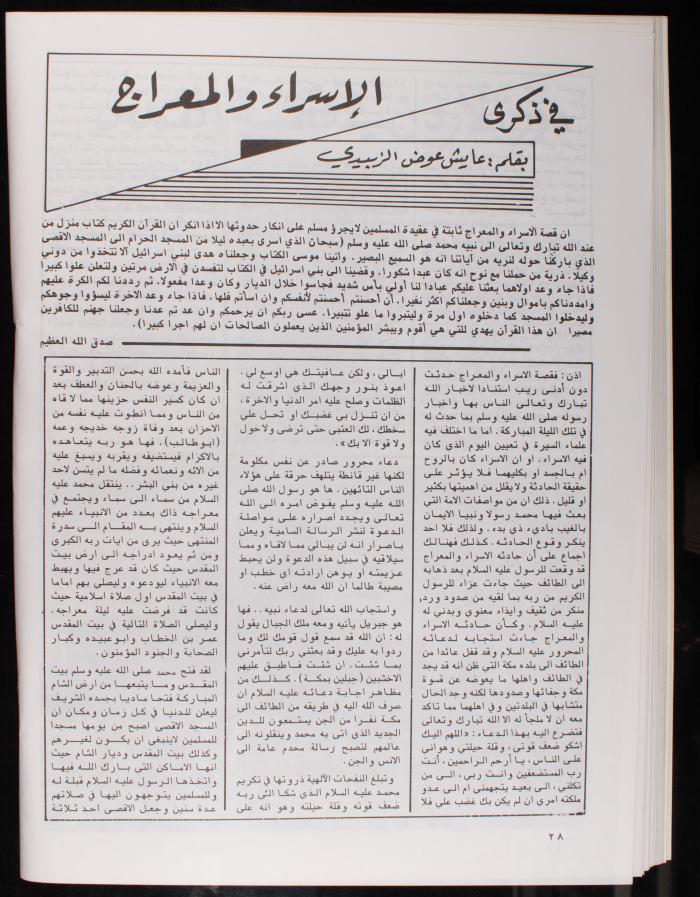 في ذكرى
الإسراء والمعراج
بقلم : عايش عوض الزبيدي
ان قصة الاسراء والمعراج ثابتة في عقيدة المسلمين لايجرؤ مسلم على انكار حدوثها الااذا انكر ان القرآن الكريم كتاب منزل من
عند الله تبارك وتعالى الى نبيه محمد صلى الله عليه وسلم (سبحان الذي اسرى بعبده ليلا من المسجد الحرام الى المسجد الاقصى
الذي باركنا حوله لنريه من آياتنا انه هو السميع البصير. واتينا موسى الكتاب وجعلناه هدى لبني اسرائيل ألا تتخذوا من دوني
وكيلا. ذرية من حملنا مع نوح انه كان عبدا شكورا. وقضينا الى بني اسرائيل في الكتاب لتفسدن في الارض مرتين ولتعلن علوا كبيرا
فاذا جاء وعد اولاهما بعثنا عليكم عبادا لنا أولي بأس شديد فجاسوا خلال الديار وكان وعدا مفعولا. ثم رددنا لكم الكرة عليهم
وامددناكم بأموال وبنين وجعلناكم اكثر نفيرا. أن أحسنتم أحسنتم لأنفسكم وان اسأتم فلها. فاذا جاء وعد الاخرة ليسؤوا وجوهكم
وليدخلوا المسجد كما دخلوه اول مرة وليتبروا ما علو تتبيرا. عسى ربكم ان يرحمكم وان عد تم عدنا وجعلنا جهنم للكافرين
مصيرا ان هذا القرآن يهدي للتي هي أقوم ويبشر المؤمنين الذين يعملون الصالحات ان لهم اجرا كبيرا).
صدق الله العظيم
اذن : فقصة الاسراء والمعراج حدثت
دون أدنى ريب استنادا لاخبار الله
تبارك وتعالى الناس بها واخبار
رسوله صلى الله عليه وسلم بما حدث له
في تلك الليلة المباركة. اما ما اختلف فيه
علماء السيرة في تعيين اليوم الذي كان
فيه الاسراء. او ان الاسراء كان بالروح
ام بالجسد او بكليهما فلا يؤثر على
حقيقة الحادثة ولايقلل من اهميتها بكثير
او قليل. ذلك ان من مواصفات الامة التي
بعث فيها محمد رسولا ونبيا الايمان
بالغيب باديء ذي بدء. ولذلك فلا احد
ينكر وقوع الحادثه. كذلك فهنالك
اجماع على أن حادثه الاسراء والمعراج
قد وقعت للرسول عليه السلام بعد ذهابه
الى الطائف حيث جاءت عزاء للرسول
الكريم من ربه بما لقيه من صدود ورد
منكر من ثقيف وايذاء معنوي وبدني له
عليه السلام. وكأن حادثه الاسراء
والمعراج جاءت استجابه لدعائه
المحرور عليه السلام وقد قفل عائدا من
الطائف الى بلده مكة التي ظن انه قد يجد
في الطائف واهلها ما يعوضه عن قسوة
مكة وجفائها وصدودها لكنه وجد الحال
متشابها في البلدتين و في اهلهما مما تاكد
معه ان لا ملجأ له الا الله تبارك وتعالى
فتضرع اليه بهذا الدعاء : «اللهم اليك
اشكو ضعف قوتي، وقلة حيلتي وهواني
على الناس، يا أرحم الراحمين، أنت
رب المستضعفين وانت ربي، الى من
تكلني، الى بعيد يتجهمني ام الى عدو
ملكته امري ان لم يكن بك غضب علي فلا
ابالي، ولكن عافيتك هي اوسع لي.
اعوذ بنور وجهك الذي اشرقت له
الظلمات وصلح عليه امر الدنيا والاخرة،
من ان تنزل بي غضبك او تحل علي
سخطك، لك العتبى حتى ترضى ولاحول
ولا قوة الا بك».
دعاء محرور صادر عن نفس مكلومة
لكنها غير قانطة يتلهف حرقة على هؤلاء
الناس التائهين. ها هو رسول الله صلى
الله عليه وسلم يفوض امره الى الله
تعالى ويجدد اصراره على مواصلة
الدعوة لنشر الرسالة السامية ويعلن
باصرار انه لن يبالي مما لاقاه ومما
سيلاقيه في سبيل هذه الدعوة ولن يحبط
عزيمته او يوهن ارادته اي خطب او
مصيبة طالما ان الله معه راض عنه.
و استجاب الله تعالى لدعاء نبيه.. فها
هو جبريل يأتيه ومعه ملك الجبال يقول
له : ان الله قد سمع قول قومك لك وما
ردوا به عليك وقد بعثني ربك لتأمرني
بما شئت. ان شئت فاطبق عليهم
الاخشبين (جبلين بمكة). كذلك من
مظاهر اجابة دعائه عليه السلام ان
صرف الله اليه في طريقه من الطائف الى
مكة نفرا من الجن يستمعون للدين
الجديد الذي اتى به محمد وينقلونه الى
عالمهم لتصبح رسالة محمد عامة الى
الانس والجن.
وتبلغ النفحات الألهية ذروتها في تكريم
محمد عليه السلام الذي شكا الى ربه
ضعف قوته وقلة حيلته وهو انه على
الناس فأمده الله بحسن التدبير والقوة
والعزيمة وعوضه بالحنان والعطف بعد
ان كان كسير النفس حزينها مما لاقاه
من الناس ومما انطوت عليه نفسه من
الاحزان بعد وفاة زوجه خديجه وعمه
(ابو طالب). فها هو ربه يتعاهده
بالاكرام فيستضيفه ويقربه ويسبغ عليه
من الائه ونعمائه وفضله ما لم يتسن لاحد
غيره من بني البشر.. ينتقل محمد عليه
السلام من سماء الى سماء ويجتمع في
معراجه ذاك بعدد من الأنبياء عليهم
السلام وينتهي به المقام الى سدرة
المنتهى حيث يرى من ايات ربه الكبرى
ومن ثم يعود ادراجه الى ارض بيت
المقدس حيث كان قد عرج فيها ويهبط
معه الانبياء ليودعوه وليصلي بهم اماما
في بيت المقدس اول صلاة اسلامية حيث
كانت قد فرضت عليه ليلة معراجه.
وليصلي الصلاة التالية في بيت المقدس
عمر بن الخطاب وابو عبيده وكبار
الصحابة والجنود المؤمنون.
لقد فتح محمد صلى الله عليه وسلم بيت
المقدس وما يتبعها من ارض الشام
المباركة فتحا ماديا بجسده الشريف
ليعلن للدنيا في كل زمان ومكان ان
المسجد الاقصى اصبح من يومها مسجدا
للمسلمين لاينبغي ان يكون لغيرهم
وكذلك بيت المقدس وديار الشام حيث
انها الاماكن التي بارك الله فيها
واتخذها الرسول عليه السلام قبلة له
وللمسلمين يتوجهون اليها في صلاتهم
عدة سنين وجعل الاقصى احد ثلاثة
٢٨